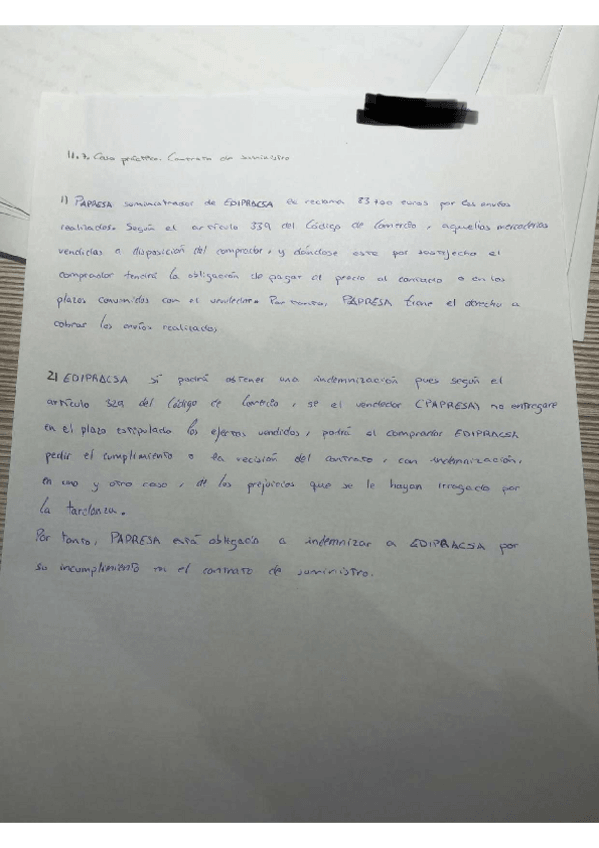 11.7. Caso práctico. Contrato de suministro
1) PAPRESA suministrador de EDIPRACSA le reclama 83 700 euros por los envíos
realizados. Según el artículo 339 del Código de Comercio, aquellas mercaderías
vendidas a disposición del comprador, y dándose este por satisfecho el
comprador tendrá la obligación de pagar el precio al contado o en los
plazos convenidos con el vendedor. Por tanto, PAPRESA tiene el derecho a
cobrar los envíos realizados.
2) EDIPRACSA sí podrá obtener una indemnización pues según el
artículo 329 del Código de Comercio, se el vendedor (PAPRESA) no entregare
en el plazo estipulado los efectos vendidos, podrá el comprador EDIPRACSA
pedir el cumplimiento o la recisión del contrato, con indemnización,
en uno y otro caso, de los prejuicios que se le hayan irrogado por
la tardanza.
Por tanto, PAPRESA está obligada a indemnizar a EDIPRACSA por
su incumplimiento en el contrato de suministro.